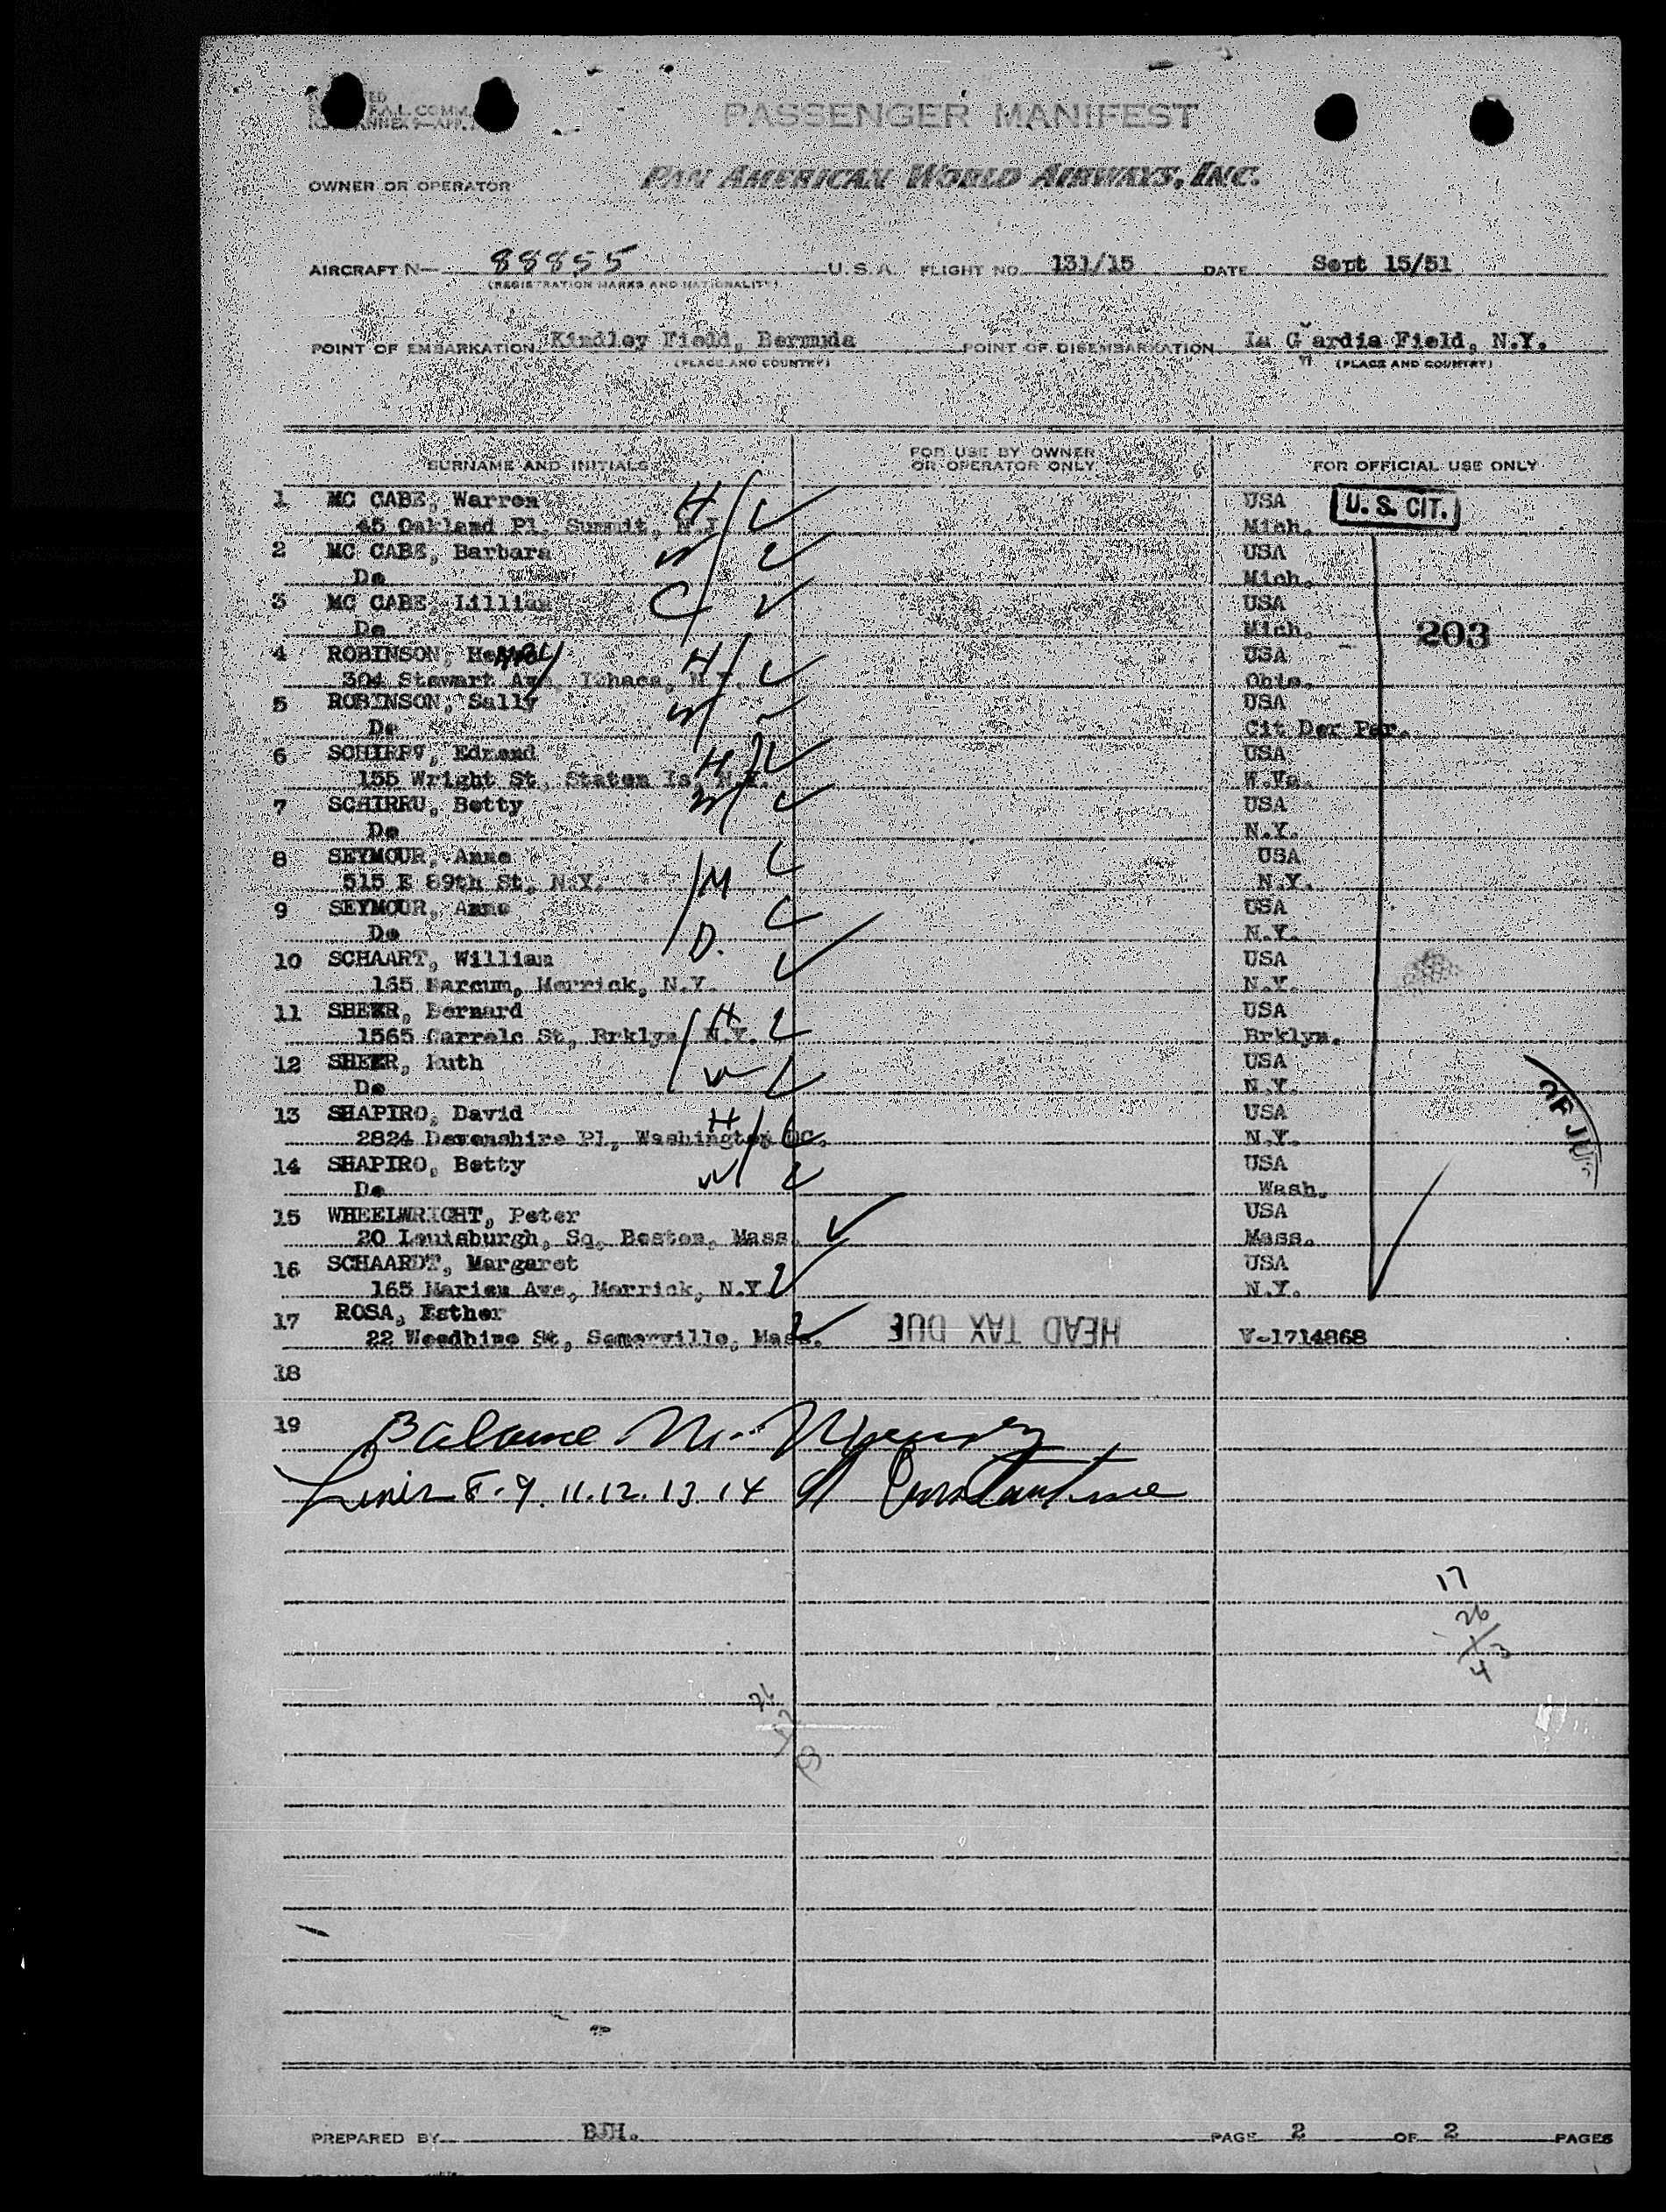 PASSENGER MANIFEST
OWNER OR OPERATOR PAN AMERICAN WORLD AIRWAYS, INC.
AIRCRAFT N— 88855 U.S.A. FLIGHT NO. 131/15 DATE Sept 15/51
(REGISTRATION MARKS AND NATIONALITY)
POINT OF EMBARKATION Kindley Field, Bermuda POINT OF DISEMBARKATION La G ardia Field, N.Y.
(PLACE AND COUNTRY) (PLACE AND COUNTRY)
SURNAME AND INITIALS FOR USE BY OWNER OR OPERATOR ONLY FOR OFFICIAL USE ONLY
1 MC CABE, Warren H USA U. S. CIT.
45 Oakland Pl, Summit, N.J. Mich.
2 MC CABE, Barbara W USA
Do Mich.
3 MC CABE, Lillian C USA
Do Mich. 203
4 ROBINSON, Henry H USA
304 Stewart Ave, Ithaca, N.Y. Ohio.
5 ROBINSON, Sally W USA
Do Cit Der Par.
6 Edmond H USA
155 Wright St, Staten Is, N.Y. W.Va.
7 SCHIRRU, Betty W USA
Do N.Y.
8 SEYMOUR, Anne USA
515 E 89th St, N.Y. M N.Y.
9 SEYMOUR, Anne USA
Do D. N.Y.
10 SCHAART, William USA
165 Marcum, Merrick, N.Y. N.Y.
11 SHEER, Bernard H USA
1565 St, Brklyn, N.Y. Brklyn.
12 SHEER, Ruth W USA
Do N.Y.
13 SHAPIRO, David H USA
2824 Devonshire Pl, Washington DC. N.Y.
14 SHAPIRO, Betty W USA
Do Wash.
15 WHEELWRIGHT, Peter USA
20 Louisburgh, Sq, Boston, Mass. Mass.
16 SCHAARDT, Margaret USA
165 Ave, Merrick, N.Y. N.Y.
17 ROSA, Esther
22 Woodbine St, Somerville, Mass. HEAD TAX DUE V-1714868
18
19 Balance
Lines 8.9.11.12.13.14 Constantine
17
26
PREPARED BY BJH. PAGE 2 OF 2 PAGES